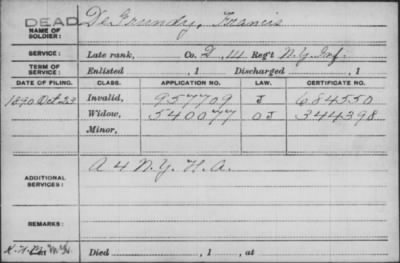 DEAD
NAME OF SOLDIER: De Grundy, Francis
SERVICE: Late rank, Co. D, 14 Reg't N.Y. Inf.
TERM OF SERVICE: Enlisted , 1 Discharged , 1
DATE OF FILING. CLASS. APPLICATION NO. LAW. CERTIFICATE NO.
1890 Oct 23 Invalid, 957709 J 684550
Widow, 540077 OJ 344398
Minor,
ADDITIONAL SERVICES: A 4 N.Y. H.A.
REMARKS:
Died , 1 , at